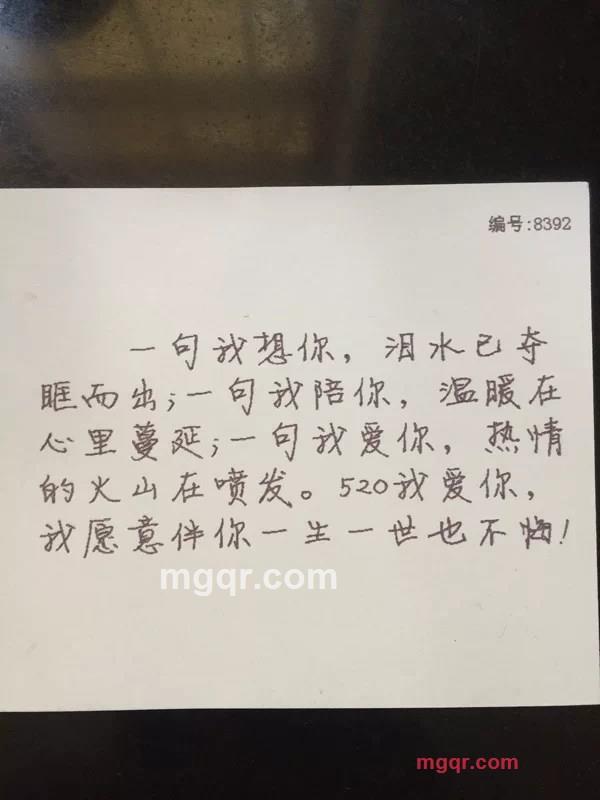 编号:8392
一句我想你，泪水已夺
眶而出;一句我陪你，温暖在
心里蔓延;一句我爱你，热情
的火山在喷发。520我爱你，
我愿意伴你一生一世也不悔!
mgqr.com
mgqr.com